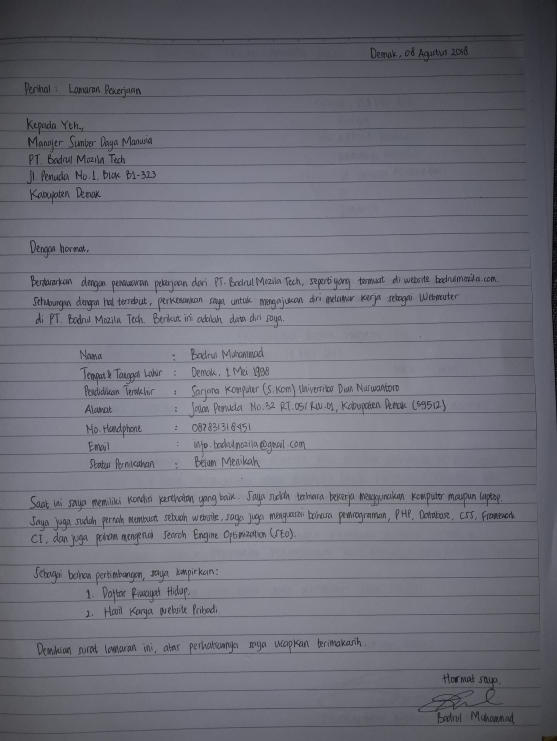 Demak, 08 Agustus 2018
Perihal : Lamaran Pekerjaan
Kepada Yth.,
Manajer Sumber Daya Manusia
PT. Badrul Mozila Tech
Jl. Pemuda No.1, Blok B1-323
Kabupaten Demak
Dengan hormat,
Berdasarkan dengan penawaran pekerjaan dari PT. Badrul Mozila Tech, seperti yang termuat di website badrulmozila.com.
Sehubungan dengan hal tersebut, perkenankan saya untuk mengajukan diri melamar kerja sebagai Webmaster
di PT. Badrul Mozila Tech. Berikut ini adalah data diri saya.
Nama : Badrul Muhammad
Tempat & Tanggal Lahir : Demak, 1 Mei 1998
Pendidikan Terakhir : Sarjana Komputer (S.Kom) Universitas Dian Nuswantoro
Alamat : Jalan Pemuda No.32 RT.05/RW.01, Kabupaten Demak (59512)
No. Handphone : 087831318451
Email : info.badrulmozila@gmail.com
Status Pernikahan : Belum Menikah
Saat ini saya memiliki kondisi kesehatan yang baik. Saya sudah terbiasa bekerja menggunakan komputer maupun laptop.
Saya juga sudah pernah membuat sebuah website, saya juga menguasai bahasa pemrograman, PHP, Database, CSS, Framework
CI, dan juga paham mengenai Search Engine Optimization (SEO).
Sebagai bahan pertimbangan, saya lampirkan:
1. Daftar Riwayat Hidup.
2. Hasil Karya Website Pribadi
Demikian surat lamaran ini, atas perhatiannya saya ucapkan terimakasih.
Hormat saya,
Badrul Muhammad